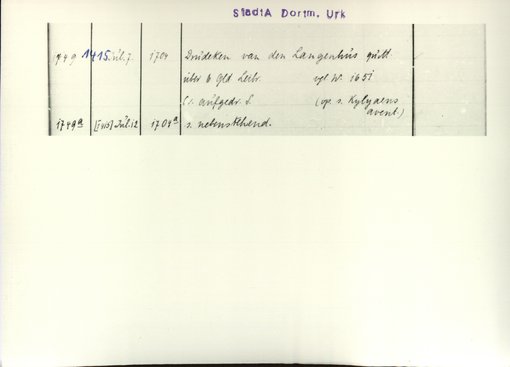 StadtA Dortm. Urk
1749 1415 Jul. 7. 1704 Drudeken van den Langenhus quitt
über 6 Gld Leibr. vgl W. 1651
S. aufgedr. S. (op. s. Kylyaens
avent.)
1749a [1415] Jul. 12 1704a s. nebenstehend.